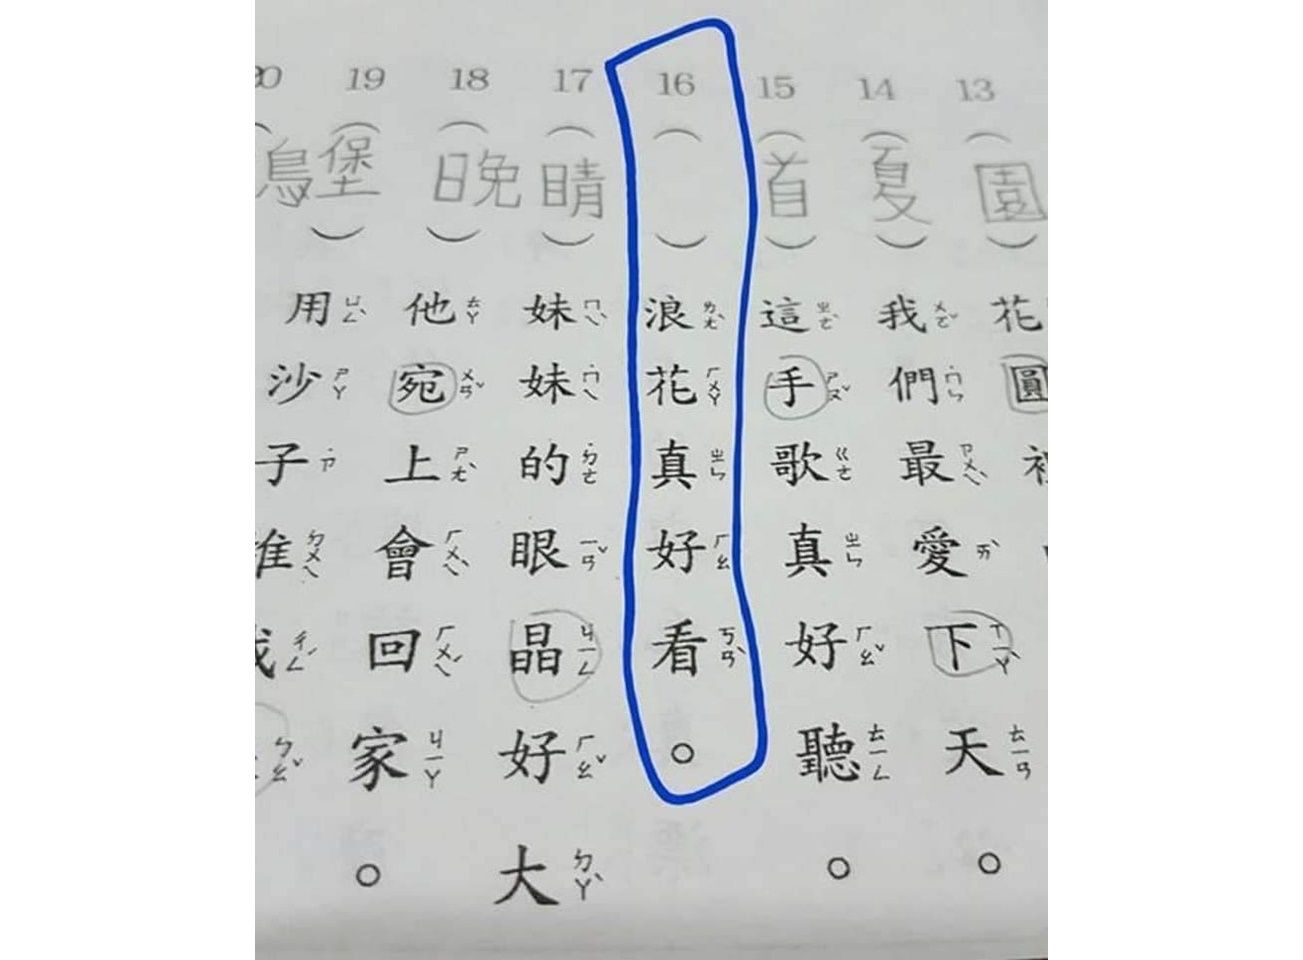 13（園）花圓
14（夏）我ㄨㄛˇ們˙ㄇㄣ最ㄗㄨㄟˋ愛ㄞˋ下ㄒㄧㄚˋ天ㄊㄧㄢ。
15（首）這ㄓㄜˋ手ㄕㄡˇ歌ㄍㄜ真ㄓㄣ好ㄏㄠˇ聽ㄊㄧㄥ。
16（）浪ㄌㄤˋ花ㄏㄨㄚ真ㄓㄣ好ㄏㄠˇ看ㄎㄢˋ。
17（睛）妹ㄇㄟˋ妹˙ㄇㄟ的˙ㄉㄜ眼ㄧㄢˇ晶ㄐㄧㄥ好ㄏㄠˇ大ㄉㄚˋ
18（晚）他ㄊㄚ宛ㄨㄢˇ上ㄕㄤˋ會ㄏㄨㄟˋ回ㄏㄨㄟˊ家ㄐㄧㄚ。
19（堡）用ㄩㄥˋ沙ㄕㄚ子˙ㄗ堆ㄉㄨㄟ成ㄔㄥˊ
20 鳥